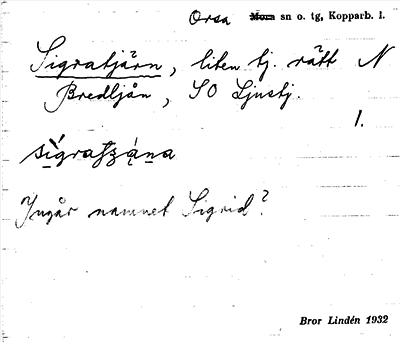 Orsa Mora sn o. tg, Kopparb. l.
Sigratjärn, liten tj. rätt N
Bredtjän, SO Ljustj.
1.
Ingår namnet Sigrid?
Bror Lindén 1932